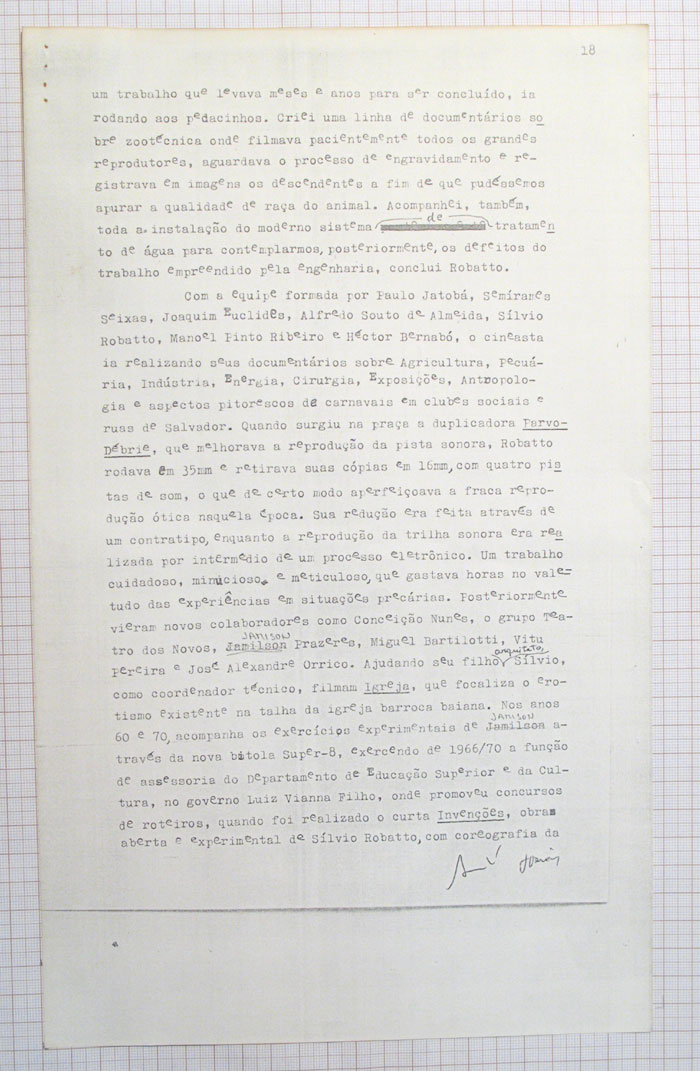 18
um trabalho que levava meses e anos para ser concluído, ia
rodando aos pedacinhos. Criei uma linha de documentários so
bre zootécnica onde filmava pacientemente todos os grandes
reprodutores, aguardava o processo de engravidamento e re-
gistrava em imagens os descendentes a fim de que pudéssemos
apurar a qualidade de raça do animal. Acompanhei, também,
toda a instalação do moderno sistema de tratamen
to de água para contemplarmos, posteriormente, os defeitos do
trabalho empreendido pela engenharia, conclui Robatto.
Com a equipe formada por Paulo Jatobá, Semírames
Seixas, Joaquim Euclides, Alfredo Souto de Almeida, Sílvio
Robatto, Manoel Pinto Ribeiro e Héctor Bernabó, o cineasta
ia realizando seus documentários sobre Agricultura, Pecuá-
ria, Indústria, Energia, Cirurgia, Exposições, Antropolo-
gia e aspectos pitorescos de carnavais em clubes sociais e
ruas de Salvador. Quando surgiu na praça a duplicadora Parvo-
Débrie, que melhorava a reprodução da pista sonora, Robatto
rodava em 35mm e retirava suas cópias em 16mm, com quatro pis
tas de som, o que de certo modo aperfeiçoava a fraca repro-
dução ótica naquela época. Sua redução era feita através de
um contratipo, enquanto a reprodução da trilha sonora era rea
lizada por intermedio de um processo eletrônico. Um trabalho
cuidadoso, minucioso e meticuloso, que gastava horas no vale-
tudo das experiências em situações precárias. Posteriormente
vieram novos colaboradores como Conceição Nunes, o grupo Tea-
JAMISON
tro dos Novos, Jamilson Prazeres, Miguel Bartilotti, Vitu
arquiteto,
Pereira e José Alexandre Orrico. Ajudando seu filho Sílvio,
como coordenador técnico, filmam Igreja, que focaliza o ero-
tismo existente na talha da igreja barroca baiana. Nos anos
JAMISON
60 e 70, acompanha os exercícios experimentais de Jamilson a-
través da nova bitola Super-8, exercendo de 1966/70 a função
de assessoria do Departamento de Educação Superior e da Cul-
tura, no governo Luiz Vianna Filho, onde promoveu concursos
de roteiros, quando foi realizado o curta Invenções, obra
aberta e experimental de Sílvio Robatto, com coreografia da